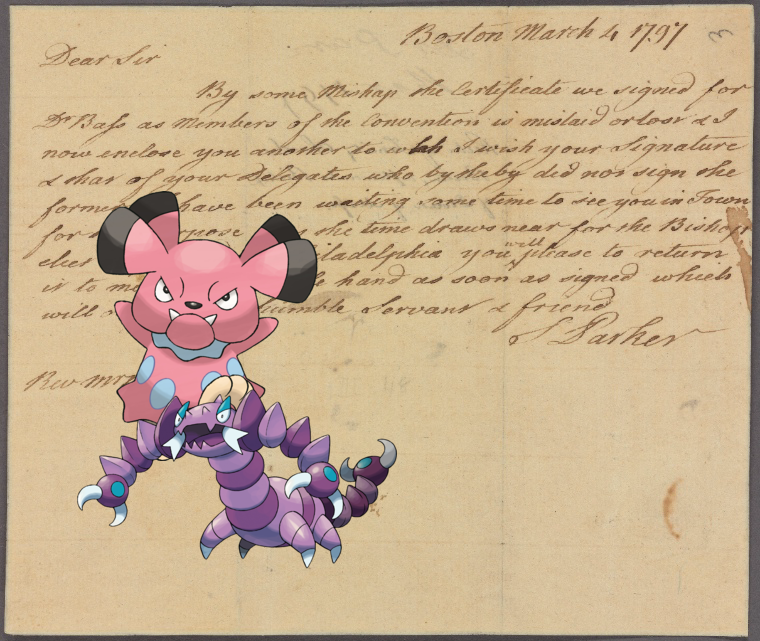 Boston March 4 1797
3
Dear Sir
By some Mishap the Certificate we signed for
Dr Bass as Members of the Convention is mislaid or lost & I
now enclose you another to wch I wish your Signature
& that of your Delegates who by the by did not sign the
former have been waiting some time to see you in Town
for the time draws near for the Bishop
elect Philadelphia you will please to return
it to me hand as soon as signed which
will humble Servant & friend
S Parker
Rev Mr